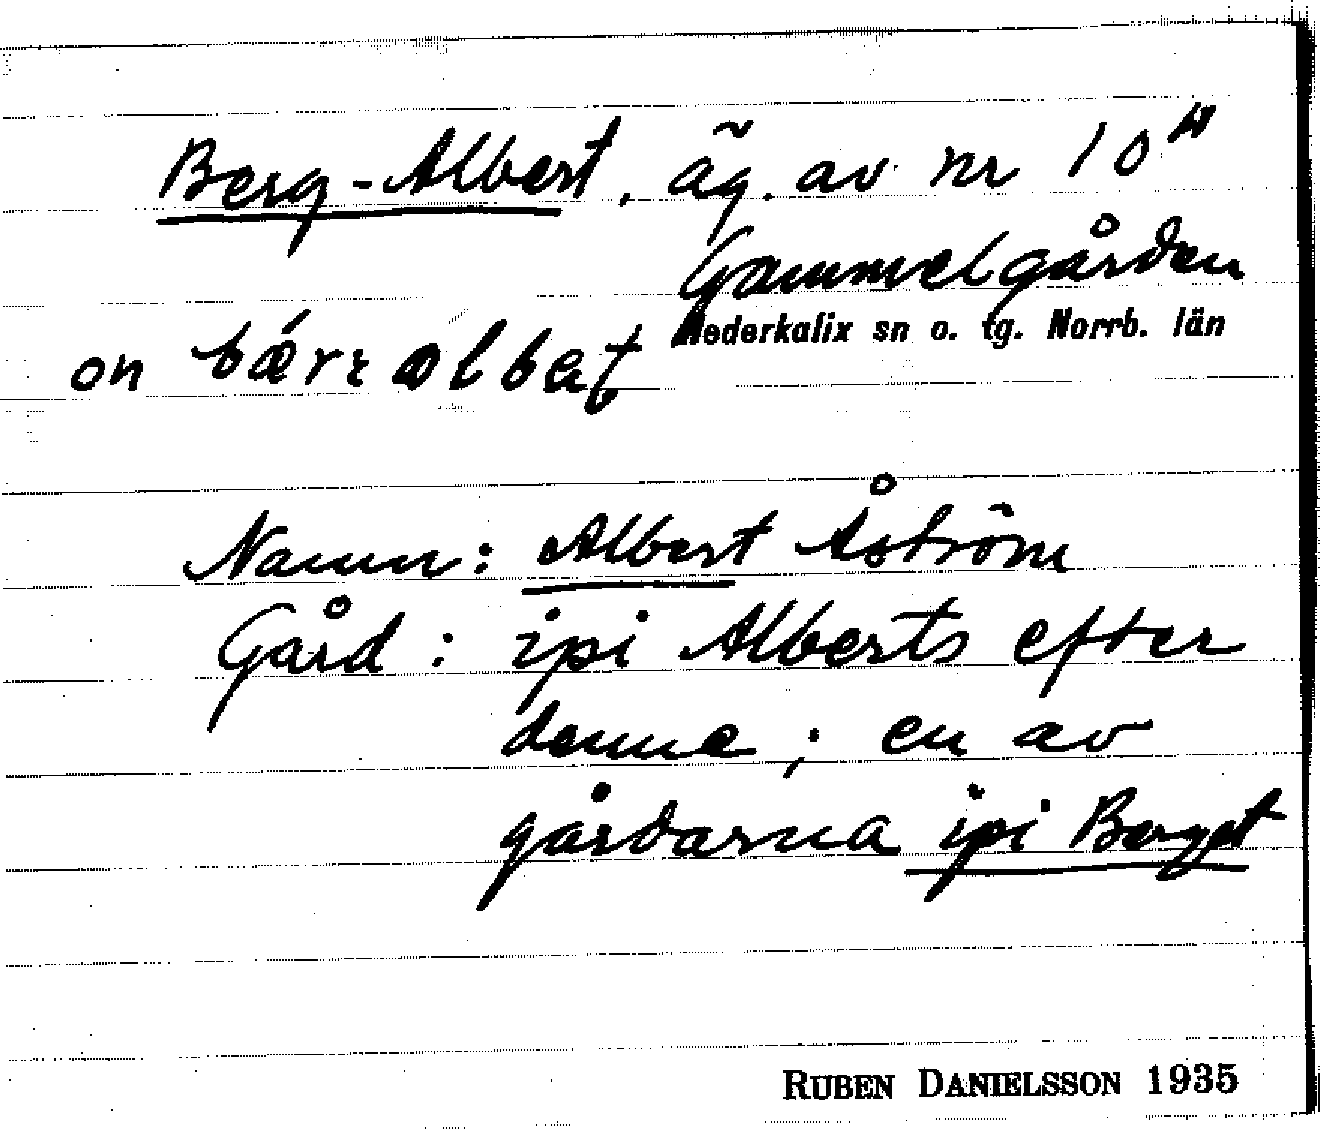 Berg-Albert, äg. av nr 10⁴
Gammelgården
Nederkalix sn o. tg. Norrb. län
on
Namn: Albert Åström
Gård: ipi Alberts efter
denne; en av
gårdarna ipi Berget
RUBEN DANIELSSON 1935